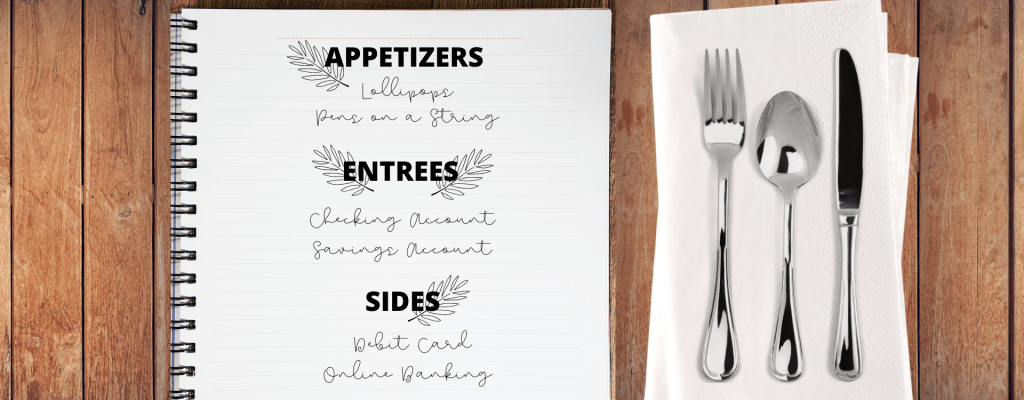 APPETIZERS
Lollipops
Pens on a String
ENTREES
Checking Account
Savings Account
SIDES
Debit Card
Online Banking